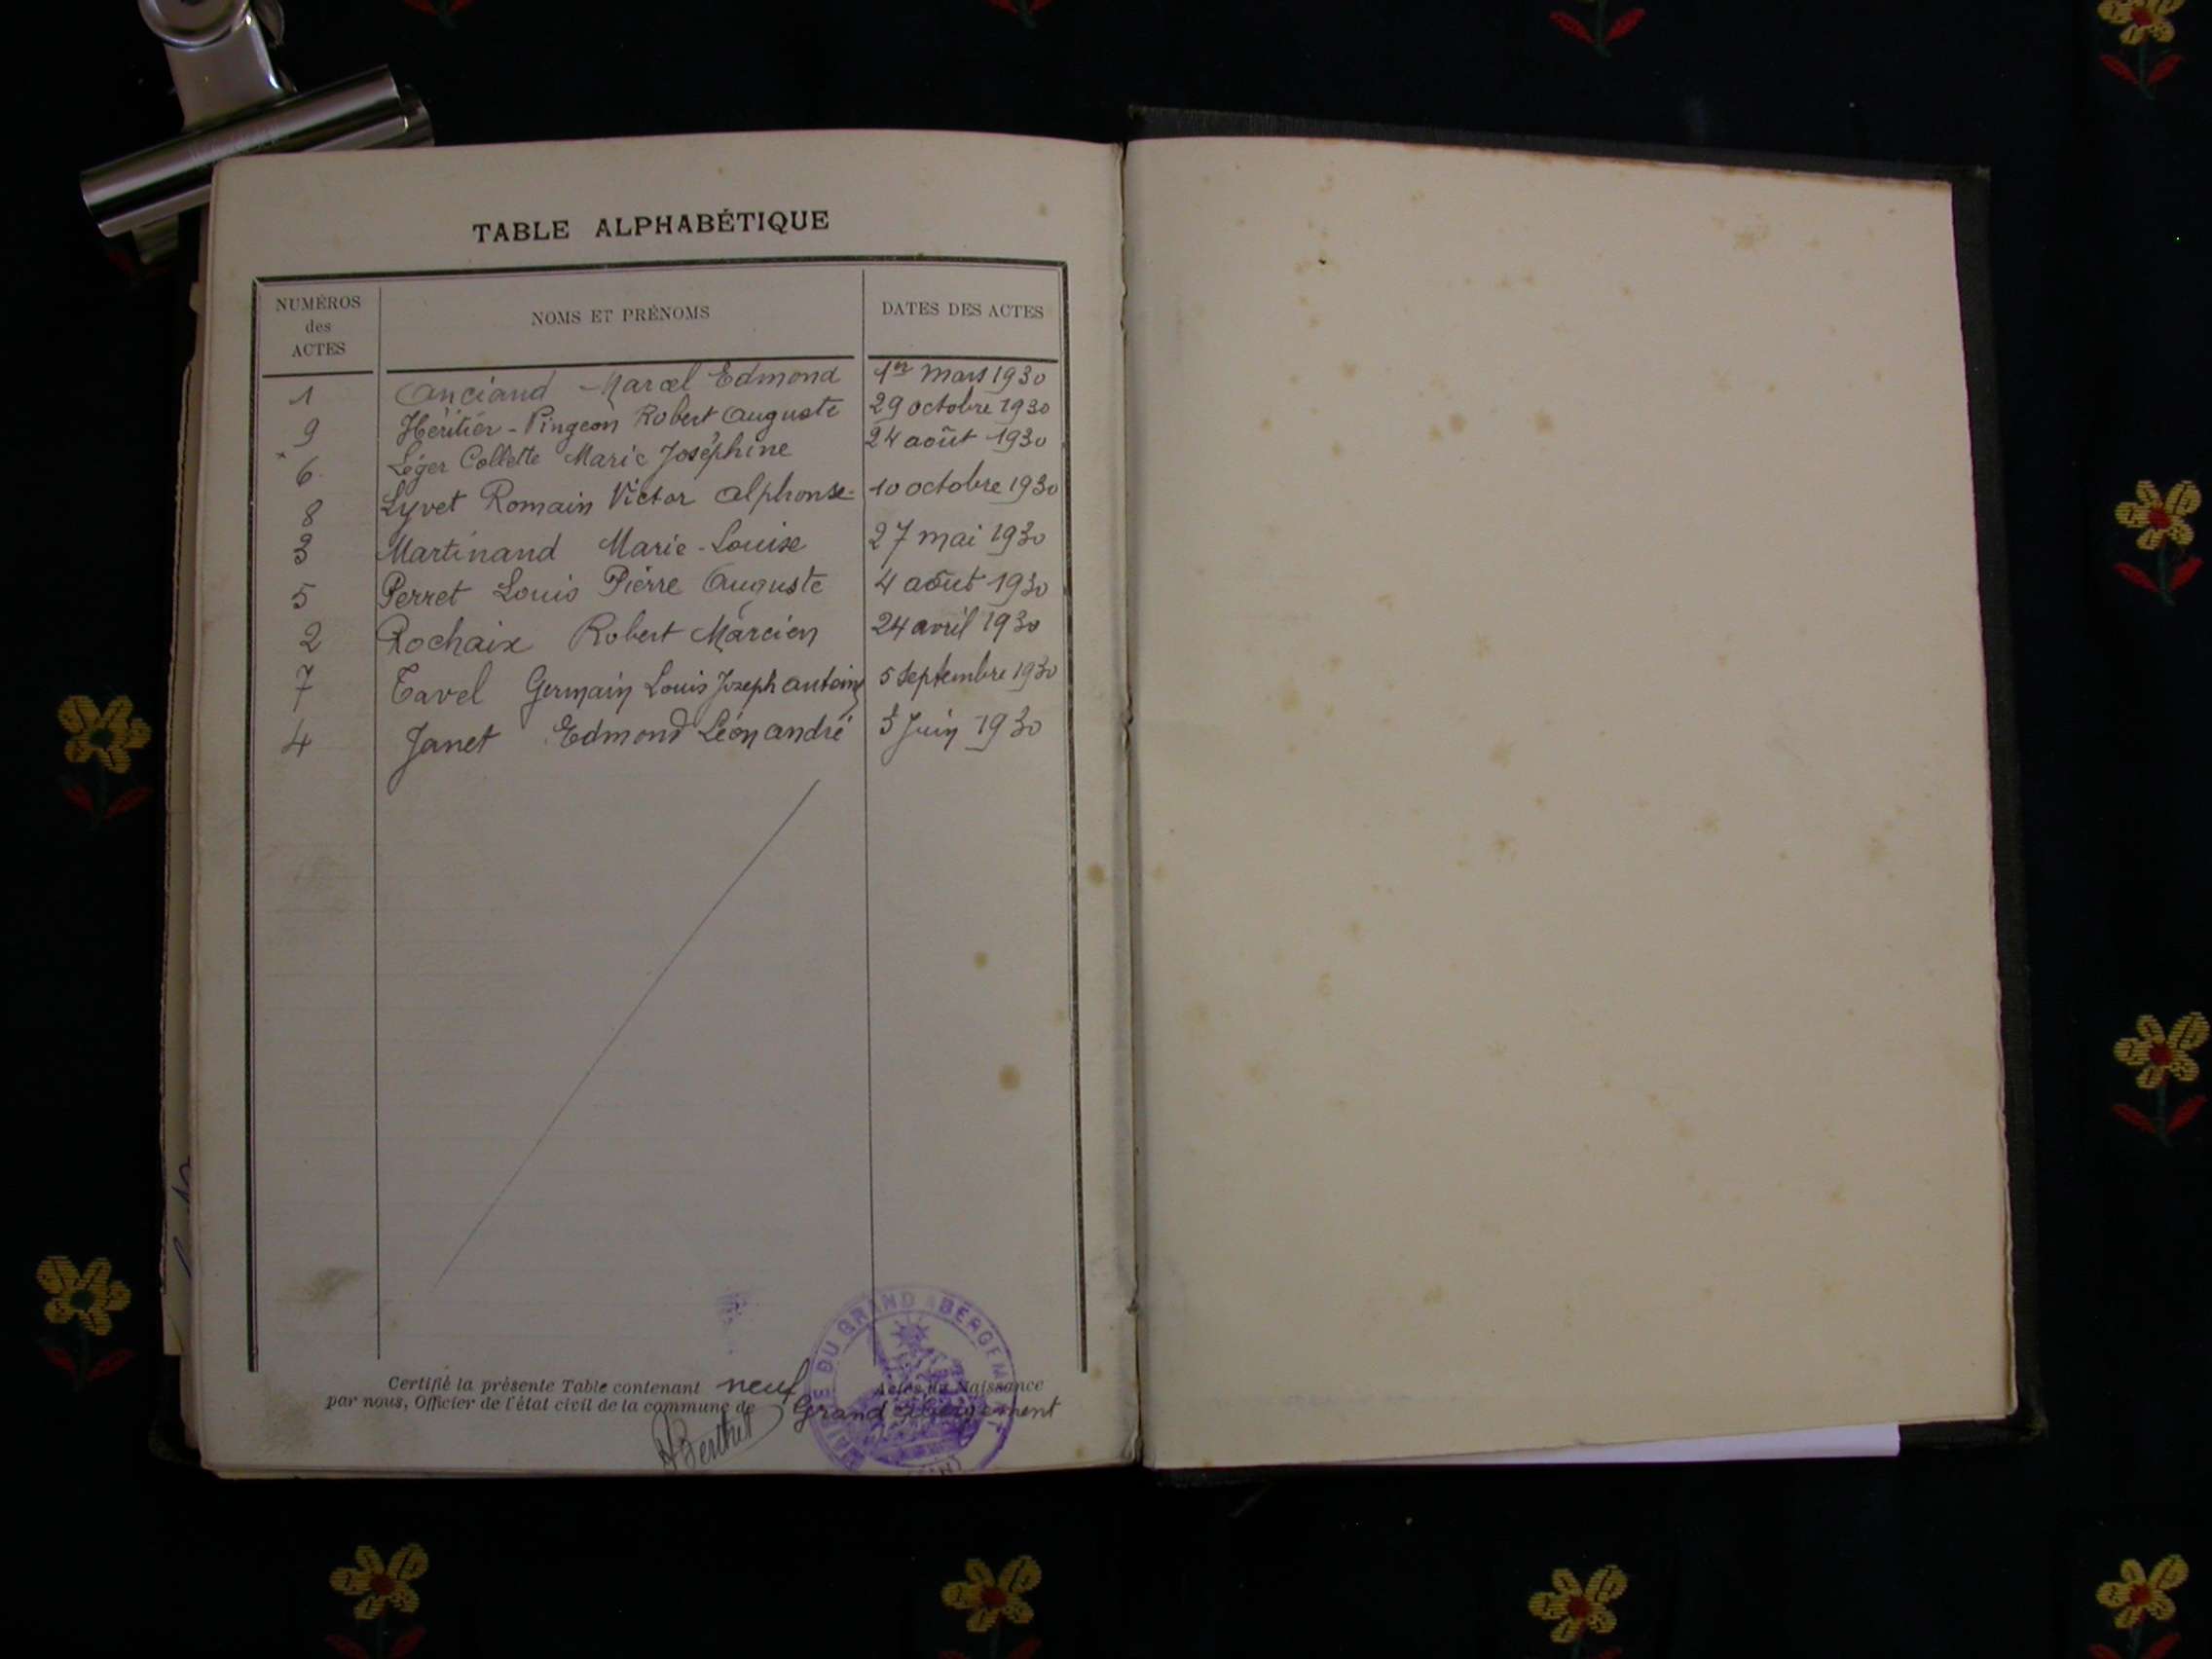 TABLE ALPHABÉTIQUE
NUMÉROS des ACTES NOMS ET PRÉNOMS DATES DES ACTES
1 Anciand Marcel Edmond 1er Mars 1930
9 Héritier-Pingeon Robert Auguste 29 octobre 1930
6 Léger Collette Marie Joséphine 24 août 1930
8 Lyvet Romain Victor Alphonse 10 octobre 1930
3 Martinand Marie-Louise 27 mai 1930
5 Perret Louis Pierre Auguste 4 août 1930
2 Rochaix Robert Marcien 24 avril 1930
7 Tavel Germain Louis Joseph Antoine 5 Septembre 1930
4 Janet Edmond Léon André Juin 1930
Certifié la présente Table contenant neuf Actes de Naissance
par nous, Officier de l'état civil de la commune de Grand Abergement
Berthet
MAIRIE DU GRAND ABERGEMENT (AIN)